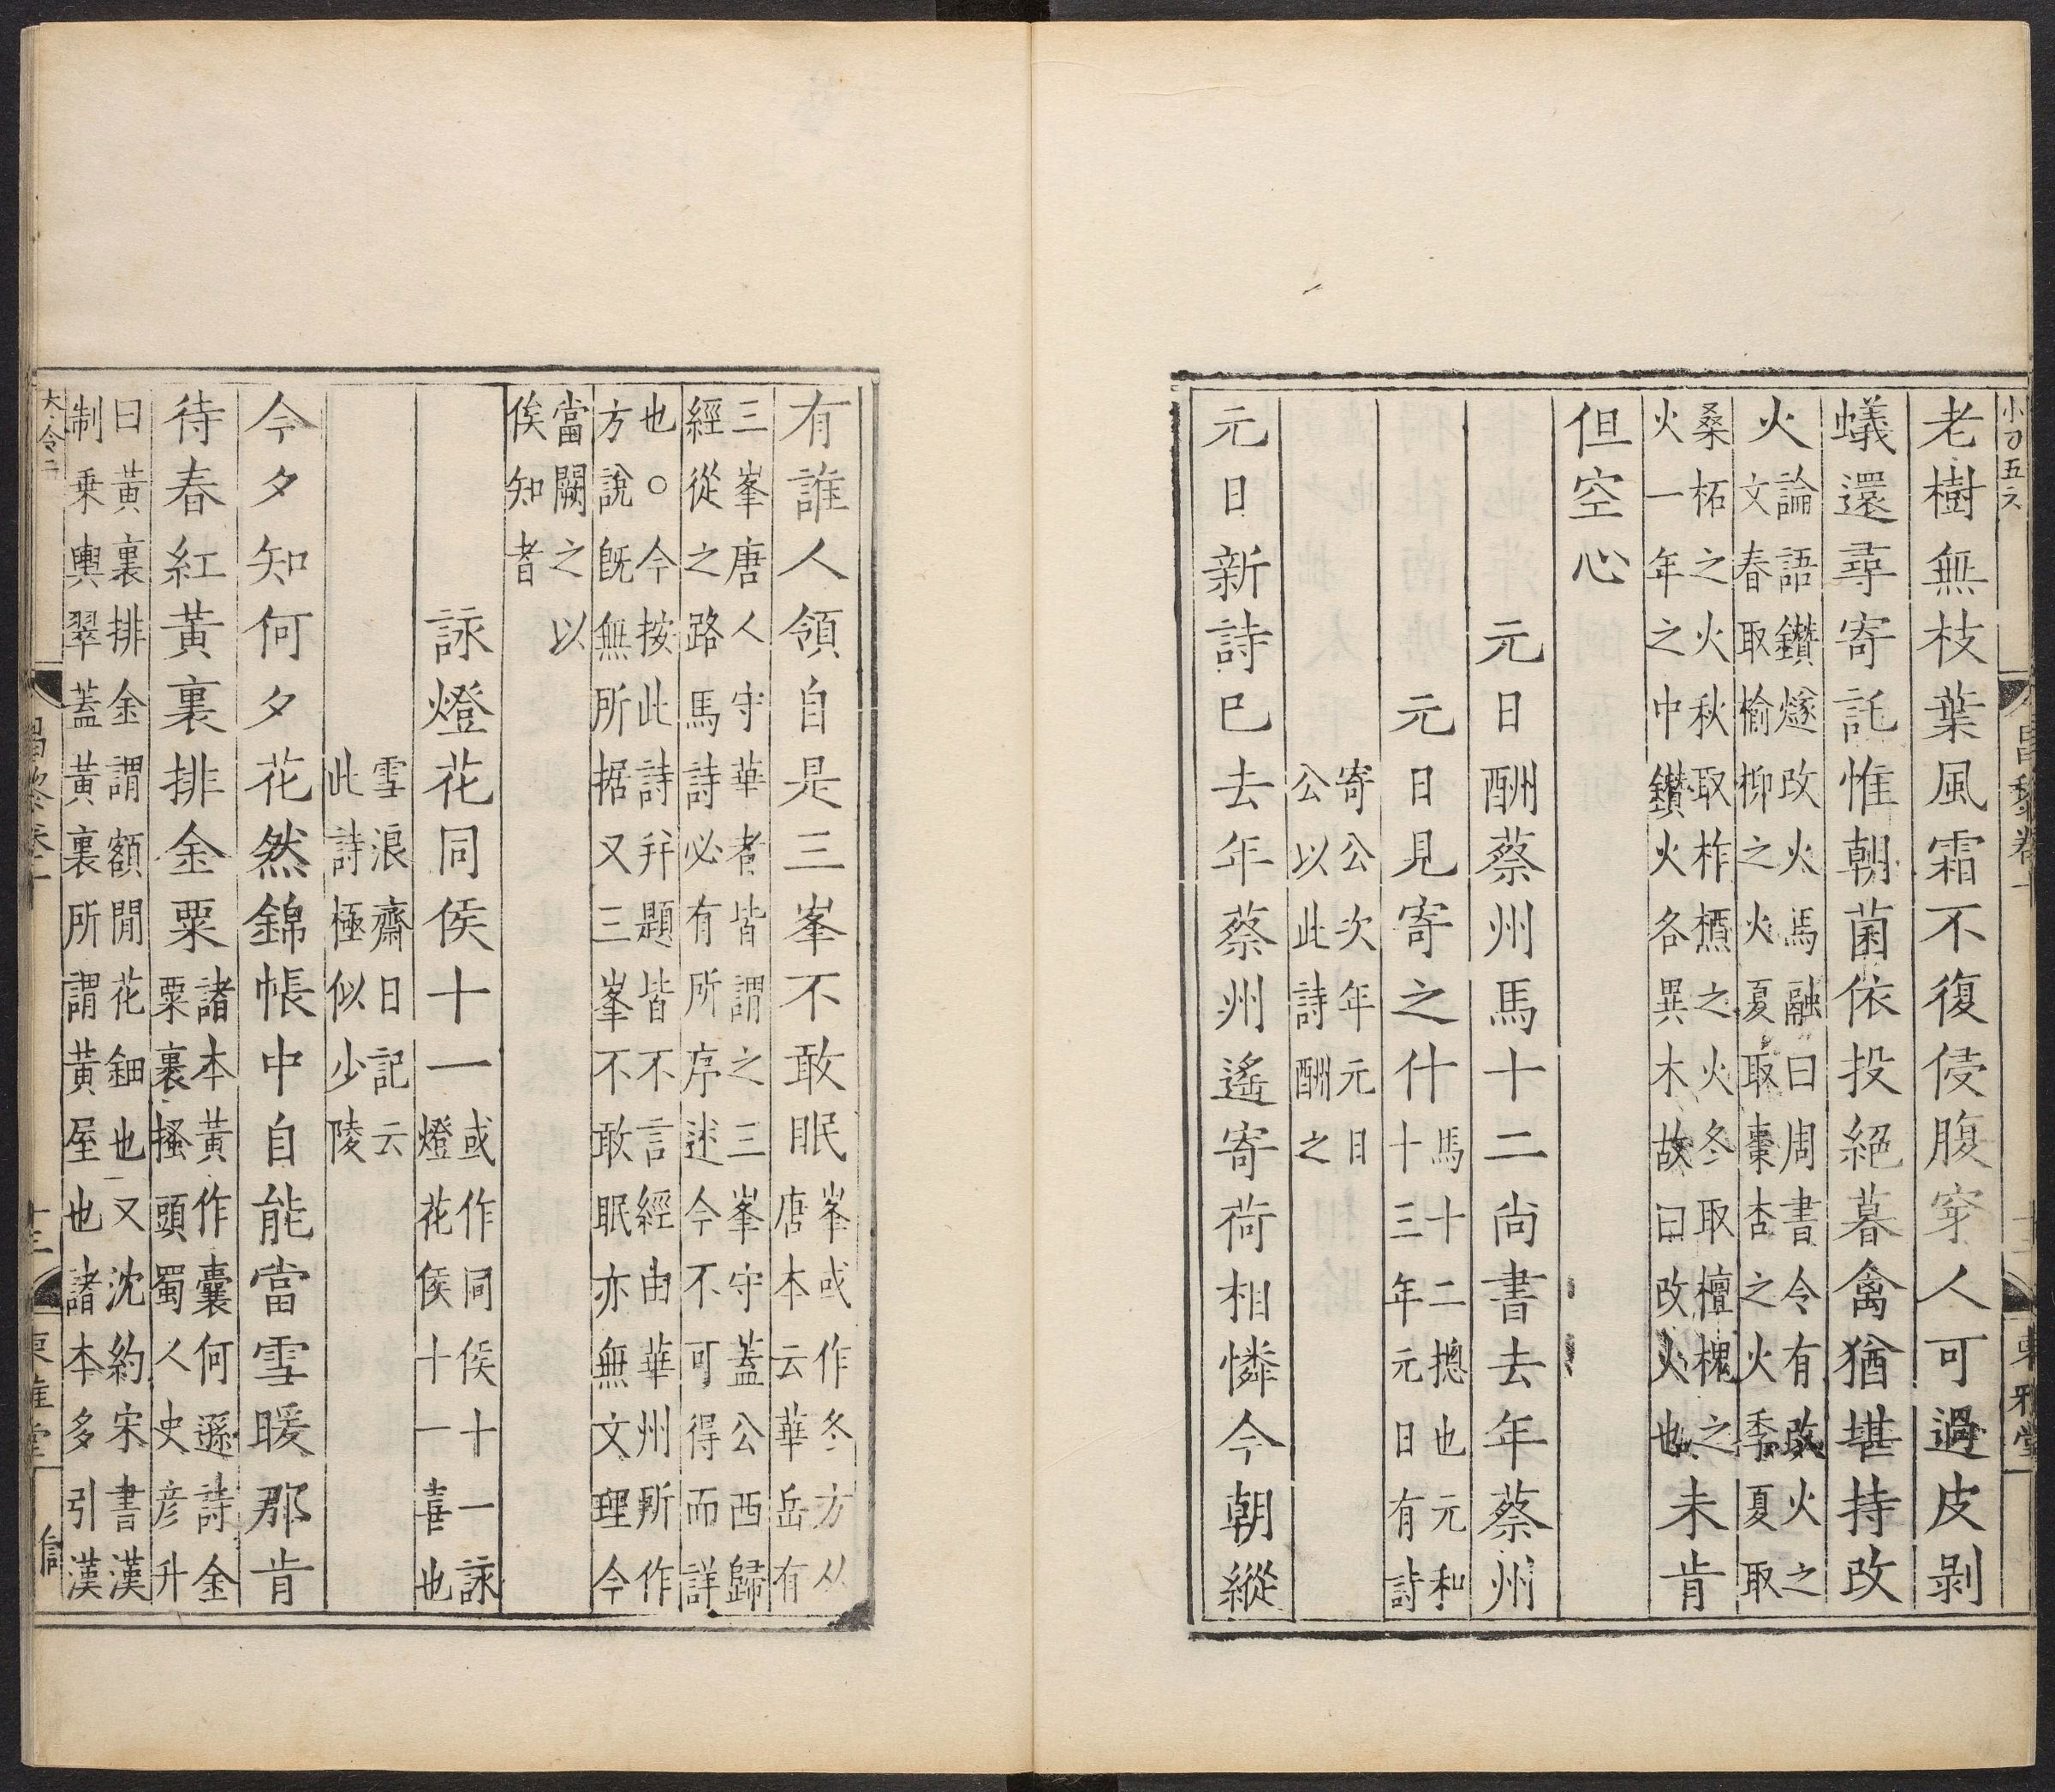 老樹無枝葉風霜不復侵腹穿人可過皮剝
蟻還尋寄託惟朝菌依投絕暮禽猶堪持改
火論語鑽燧改火馬融曰周書令有改火之
文春取榆柳之火夏取棗杏之火季夏取
桑柘之火秋取柞楢之火冬取檀槐之
火一年之中鑽火各異木故曰改火也未肯
但空心
元日酬蔡州馬十二尚書去年蔡州
元日見寄之什馬十二摠也元和
十三年元日有詩
寄公次年元日
公以此詩酬之
元日新詩已去年蔡州遙寄荷相憐今朝縱
有誰人領自是三峯不敢眠峯或作冬方从
唐本云華岳有
三峯唐人守華者皆謂之三峯守蓋公西歸
經從之路馬詩必有所序述今不可得而詳
也○今按此詩并題皆不言經由華州所作
方說旣無所据又三峯不敢眠亦無文理今
當闕之以
俟知者
詠燈花同侯十一或作同侯十一詠
燈花侯十一喜也
雪浪齋日記云
此詩極似少陵
今夕知何夕花然錦帳中自能當雪暖那肯
待春紅黃裏排金粟諸本黃作囊何遜詩金
粟裏搔頭蜀人史彦升
曰黃裏排金謂額閒花鈿也又沈約宋書漢
制乗輿翠蓋黃裏所謂黃屋也諸本多引漢
昌黎卷十
東雅堂